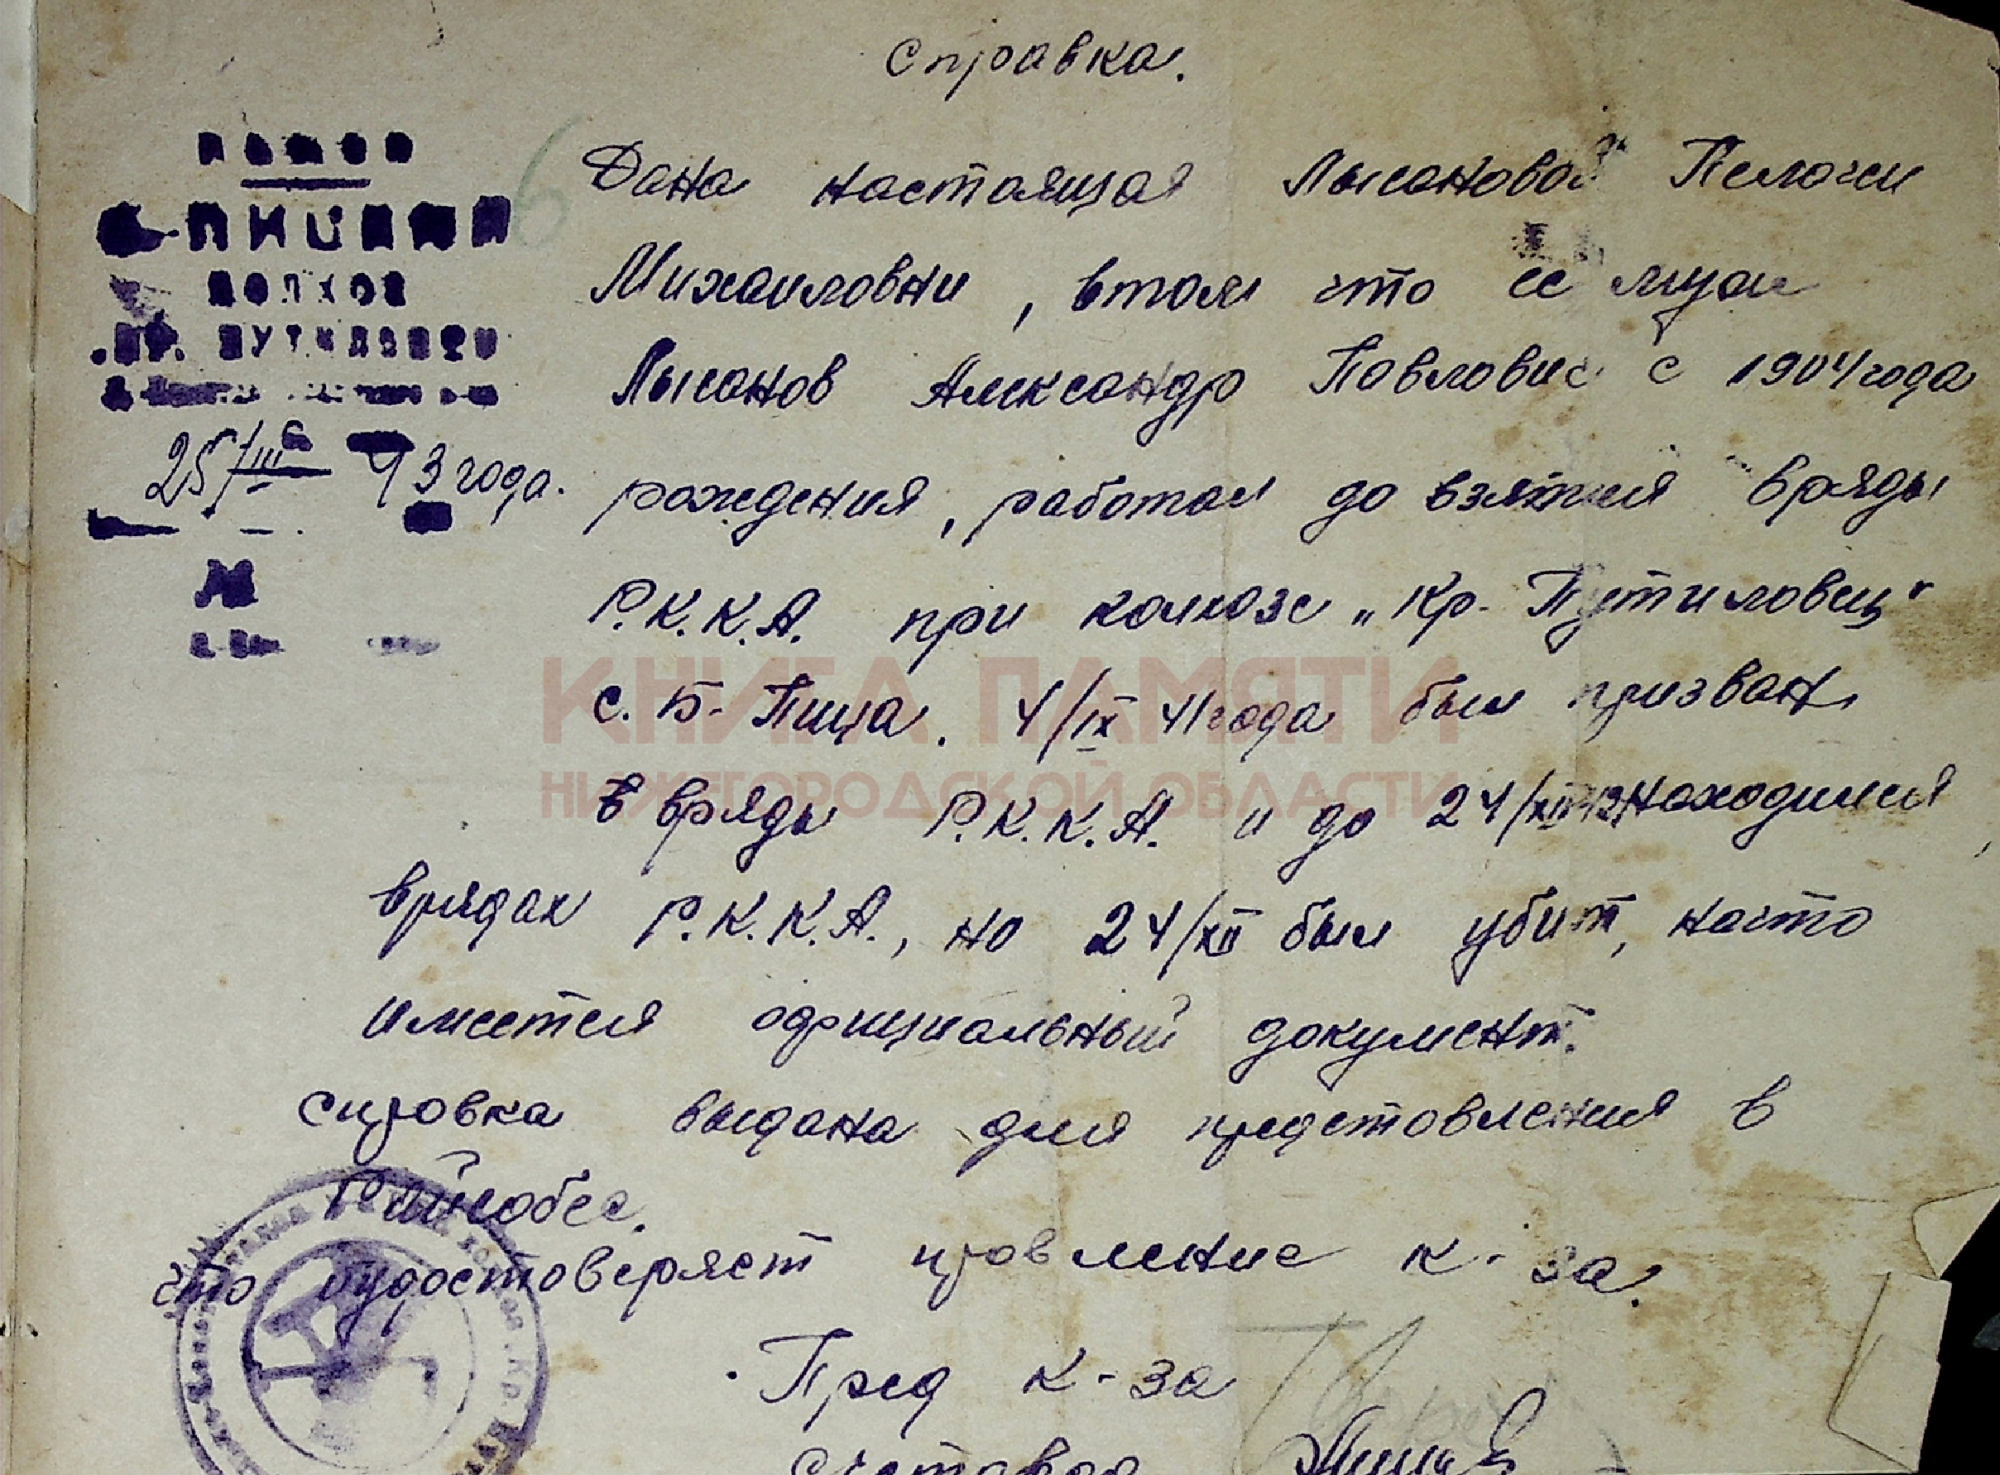 Справка.
Дана настоящая Лысановой Пелагеи
Михаиловни, втом что ее муж
Лысанов Александр Павлович с 1904 года
рождения, работал до взятия вряды
Р.К.К.А. при колхозе „Кр. Путиловец"
с. Б-Пица. 4/IX 41 года был призван
в вряды Р.К.К.А. и до 24/XII 42 находился
врядах Р.К.К.А., но 24/XII был убит, начто
имеется официальный документ.
Справка выдана для представления в
Райсобес.
что и удостоверяет правление к-за.
Пред к-за
Счетовод
КОЛХОЗ
КР. ПУТИЛОВЕЦ
25/III 43 года.
№
6
КНИГА ПАМЯТИ
НИЖЕГОРОДСКОЙ ОБЛАСТИ